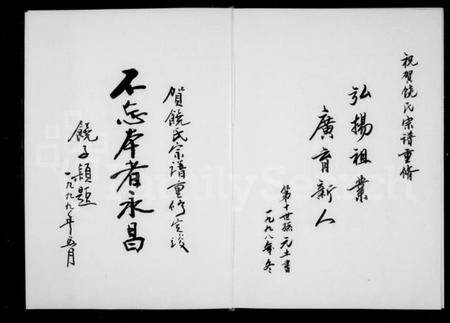 祝贺饶氏宗谱重修
弘揚祖業
廣育新人
第十世孫 元土書
一九九八年冬
贺饶氏宗谱重修完竣
不忘本者永昌
饶子颖题
一九九九年五月
FamilySearch